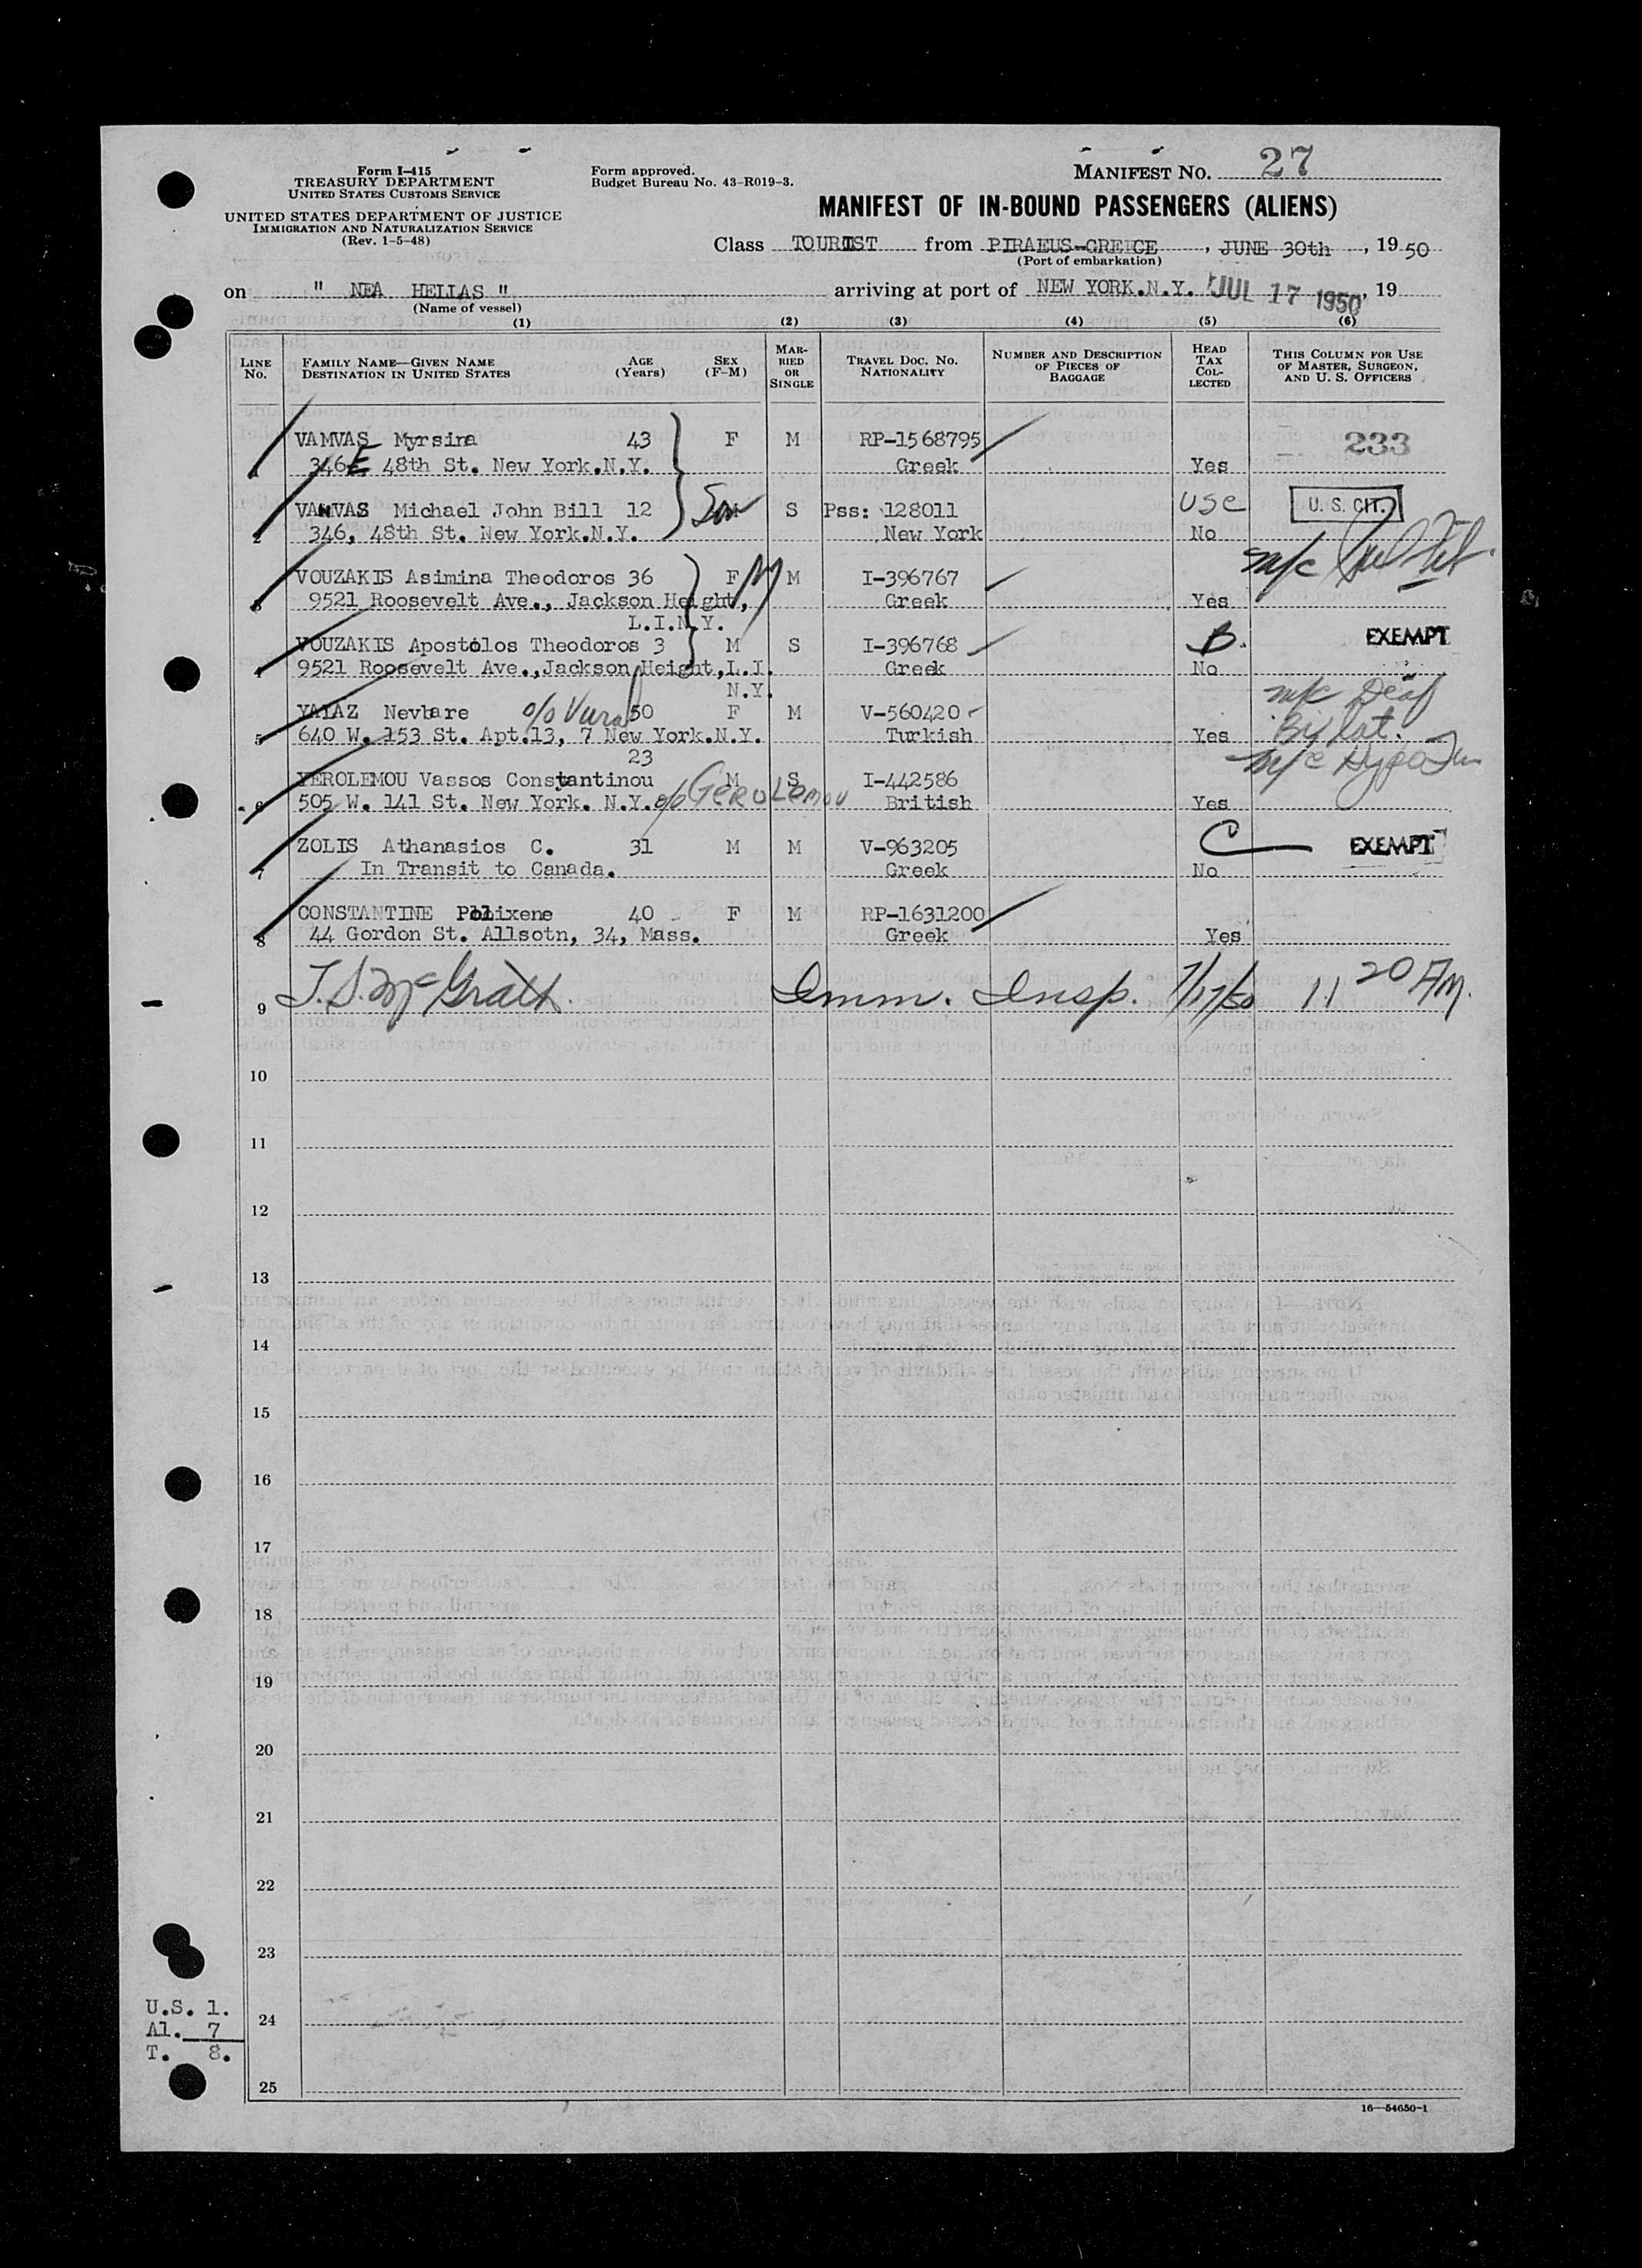 Form I-415
TREASURY DEPARTMENT
UNITED STATES CUSTOMS SERVICE
UNITED STATES DEPARTMENT OF JUSTICE
IMMIGRATION AND NATURALIZATION SERVICE
(Rev. 1-5-48)
Form approved.
Budget Bureau No. 43-R019-3.
MANIFEST NO. 27
MANIFEST OF IN-BOUND PASSENGERS (ALIENS)
Class TOURIST from PIRAEUS-GREECE, JUNE 30th, 1950
(Port of embarkation)
on " NEA HELLAS " arriving at port of NEW YORK.N.Y. JUL 17 1950, 19
(Name of vessel)
(1) (2) (3) (4) (5) (6)
LINE No. FAMILY NAME—GIVEN NAME DESTINATION IN UNITED STATES AGE (Years) SEX (F-M) MARRIED OR SINGLE TRAVEL DOC. NO. NATIONALITY NUMBER AND DESCRIPTION OF PIECES OF BAGGAGE HEAD TAX COLLECTED THIS COLUMN FOR USE OF MASTER, SURGEON, AND U. S. OFFICERS
VAMVAS Myrsina 43 F M RP-1568795 233
1 346 E 48th St. New York.N.Y. Greek Yes
VAMVAS Michael John Bill 12 Son S Pss: 128011 USC U. S. CIT.
2 346, 48th St. New York.N.Y. New York No
m/c
VOUZAKIS Asimina Theodoros 36 F M M I-396767
3 9521 Roosevelt Ave., Jackson Height, Greek Yes
L.I.N.Y.
VOUZAKIS Apostolos Theodoros 3 M S I-396768 B. EXEMPT
4 9521 Roosevelt Ave.,Jackson Height,L.I. Greek No
N.Y.
m/c Deaf
YALAZ Nevbare c/o Vural 50 F M V-560420
Bylat.
5 640 W. 153 St. Apt.13, 7 New York.N.Y. Turkish Yes
23
m/c
YEROLEMOU Vassos Constantinou M S I-442586
6 505 W. 141 St. New York. N.Y. c/o GEROLEMOU British Yes
ZOLIS Athanasios C. 31 M M V-963205 C EXEMPT
7 In Transit to Canada. Greek No
CONSTANTINE Polixene 40 F M RP-1631200
8 44 Gordon St. Allsotn, 34, Mass. Greek Yes
9 T.S. McGrath Imm. Insp. 7/17/50 11 20 AM.
10
11
12
13
14
15
16
17
18
19
20
21
22
23
24
25
U.S. 1.
Al. 7
T. 8.
16—54650-1